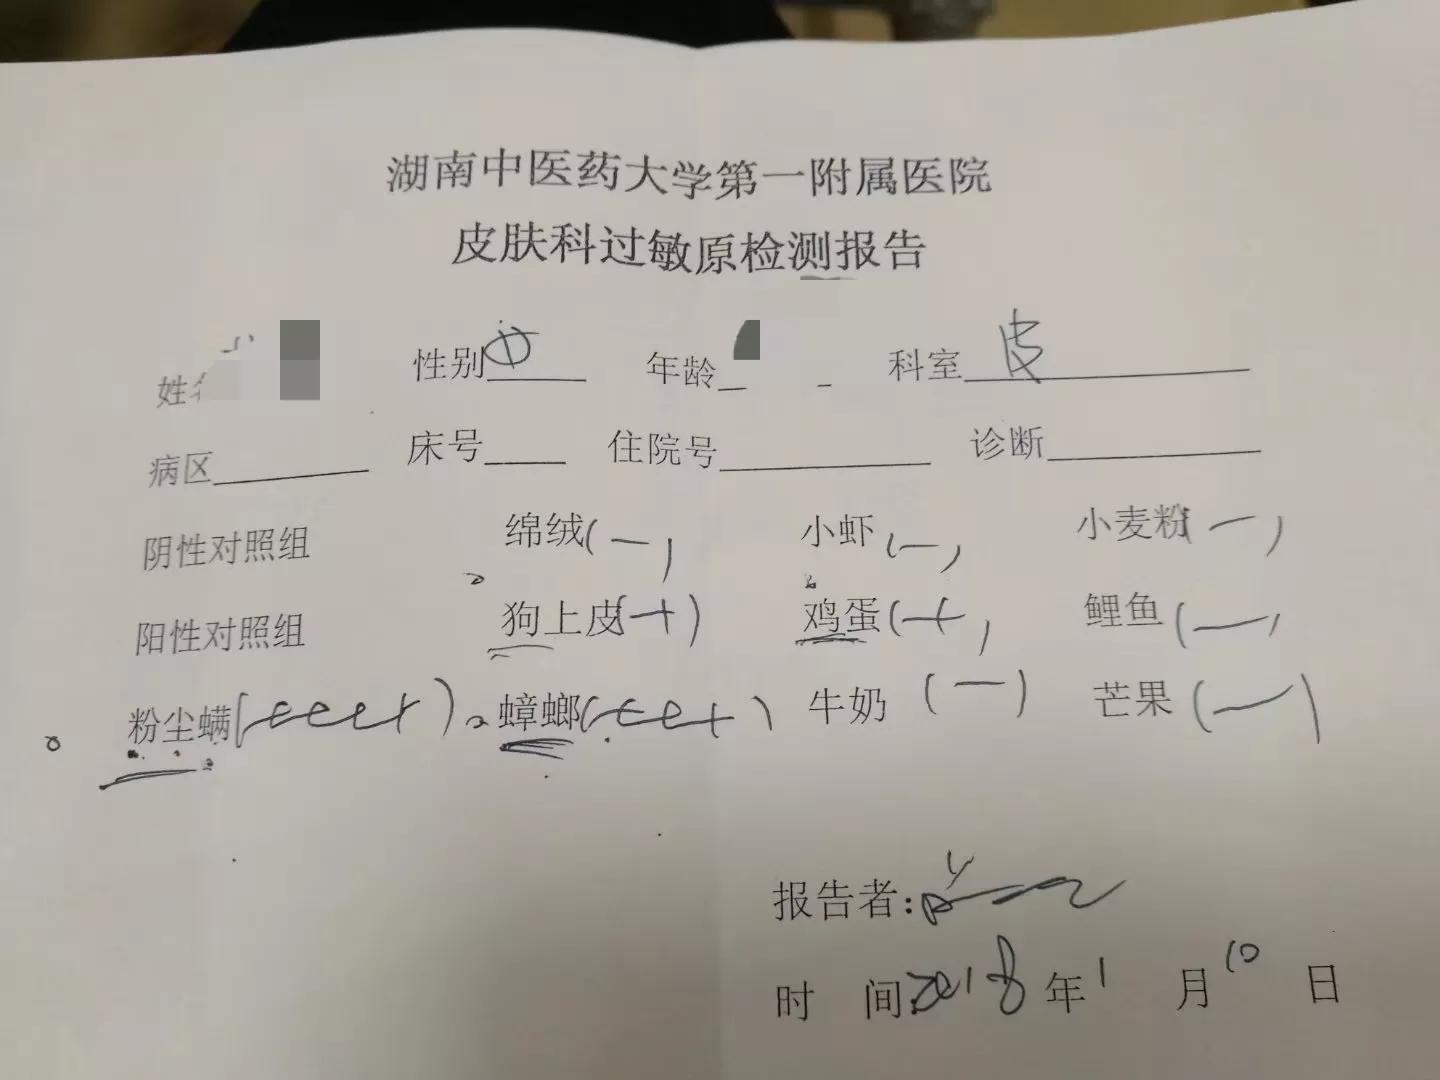 湖南中医药大学第一附属医院
皮肤科过敏原检测报告
姓 性别 女 年龄 科室 皮
病区 床号 住院号 诊断
阴性对照组 绵绒(-) 小虾(-) 小麦粉(-)
阳性对照组 狗上皮(+) 鸡蛋(+) 鲤鱼(-)
粉尘螨(++++) 蟑螂(+++) 牛奶(-) 芒果(-)
报告者:
时 间:2018年1月10日